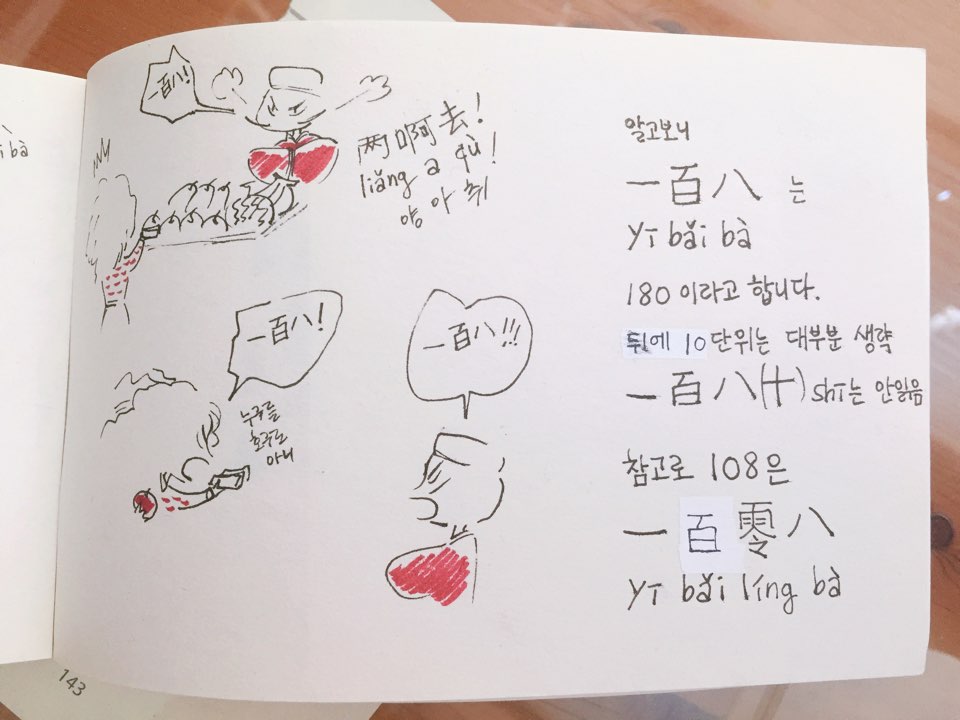 ì bà
一百八!
两啊去!
liǎng a qù!
양 아 취
一百八!
누구를
호구로
아니
一百八!!!
알고보니
一百八 는
Yī bǎi bà
180 이라고 합니다.
뒤에 10 단위는 대부분 생략
一百八(十) shī는 안읽음
참고로 108은
一百零八
Yī bǎi líng bà
143